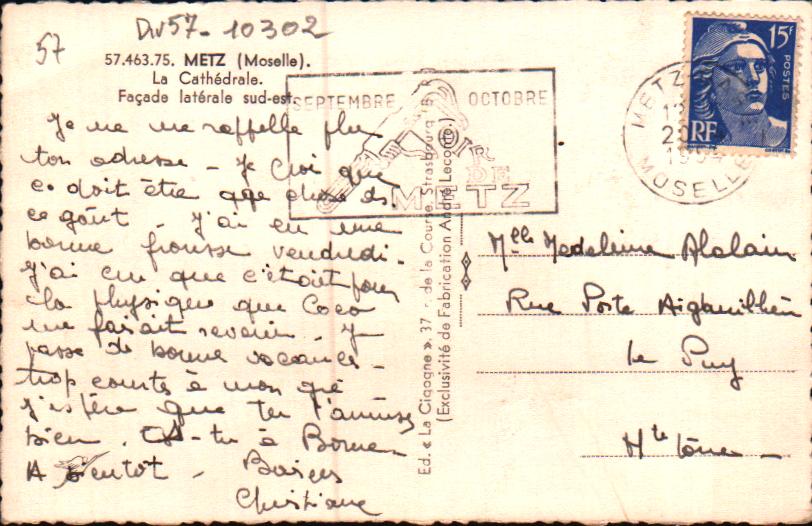 57
Div 57 - 10302
57.463.75. METZ (Moselle).
La Cathédrale.
Façade latérale sud-est.
SEPTEMBRE OCTOBRE
FOIR
DE
METZ
METZ
20
MOSELLE
15F
POSTES
RF
Je ne me rappelle plus
ton adresse - Je crois que
ce doit être qqe chose ds
ce goût - J'ai eu une
bonne frousse vendredi.
J'ai cru que c'était pour
la physique que Coco
me faisait revenir. Je
passe de bonnes vacances -
trop courtes à mon gré
J'espère que tu t'amuses
bien. Es-tu à Borne
A bientôt - Baisers
Christiane
Ed. « La Cigogne ». 37 r. de la Course. Strasbourg
(Exclusivité de Fabrication André Leconte.)
Mlle Madeleine Alalain
Rue Porte Aiguillère
Le Puy
Hte Loire